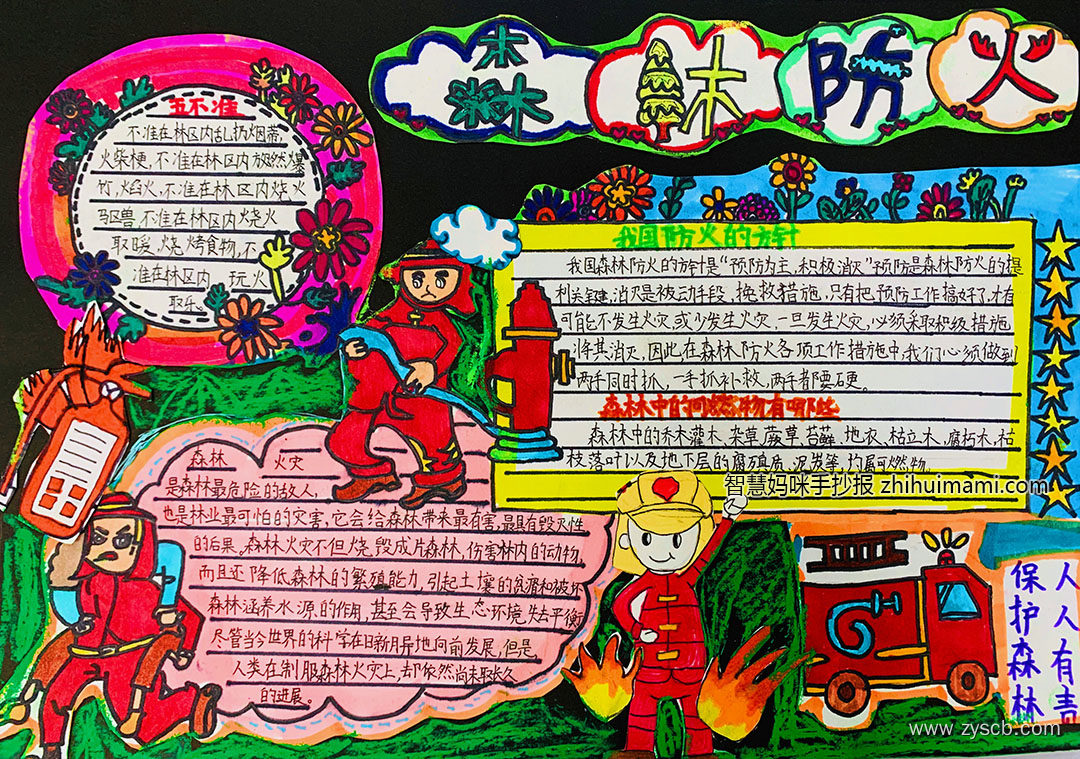 森林防火
五不准
不准在林区内乱扔烟蒂,
火柴梗,不准在林区内放燃爆
竹,焰火,不准在林区内烧火
驱兽不准在林区内烧火
取暖,烧烤食物,不
准在林区内 玩火
取乐
我国防火的方针
我国森林防火的方针是“预防为主,积极消灭”预防是森林防火的提
利关键,消灭是被动手段,挽救措施,只有把预防工作搞好了,才有
可能不发生火灾,或少发生火灾,一旦发生火灾,必须采取积级措施
将其消灭,因此,在森林防火各项工作措施中,我们必须做到
两手同时抓,一手抓补救,两手都要硬。
森林中的可燃物有哪些
森林中的乔木灌木、杂草,蕨草,苔藓、地衣、枯立木,腐朽木,枯
枝落叶以及地下层的腐殖质,泥炭等,均属可燃物。
智慧妈咪手抄报 zhihuimami.com
森林 火灾
是森林最危险的敌人,
也是林业最可怕的灾害,它会给森林带来最有害,最具有毁灭性
的后果。森林火灾不但烧毁成片森林,伤害林内的动物,
而且还降低森林的繁殖能力,引起土壤的贫瘠和破坏
森林涵养水源的作用,甚至会导致生态环境失去平衡
尽管当今世界的科学在日新月异地向前发展,但是
人类在制服森林火灾上,却依然尚未取长久
的进展。
保护森林
人人有责
www.zyscb.com